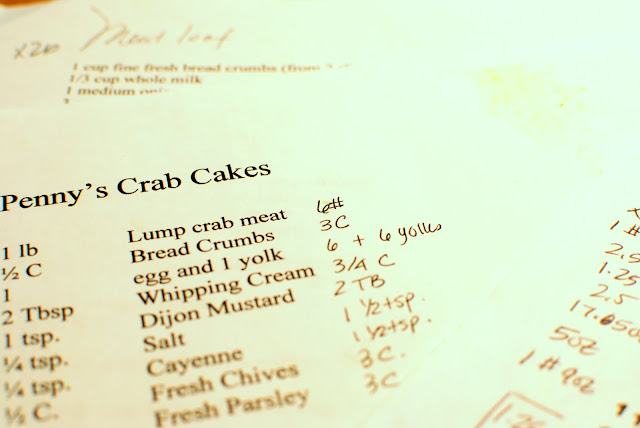 x20 Meat loaf
1 cup fine fresh bread crumbs (from
1/3 cup whole milk
1 medium
Penny's Crab Cakes
1 lb Lump crab meat 6#
½ C Bread Crumbs 3C
1 egg and 1 yolk 6 + 6 yolks
2 Tbsp Whipping Cream 3/4 C
1 tsp. Dijon Mustard 2 TB
¼ tsp. Salt 1 1/2 tsp.
¼ tsp. Cayenne 1 1/2 tsp.
½ C. Fresh Chives 3C.
Fresh Parsley 3C
1 #
2.5
1.25
2.5
5oz
1 # 9oz